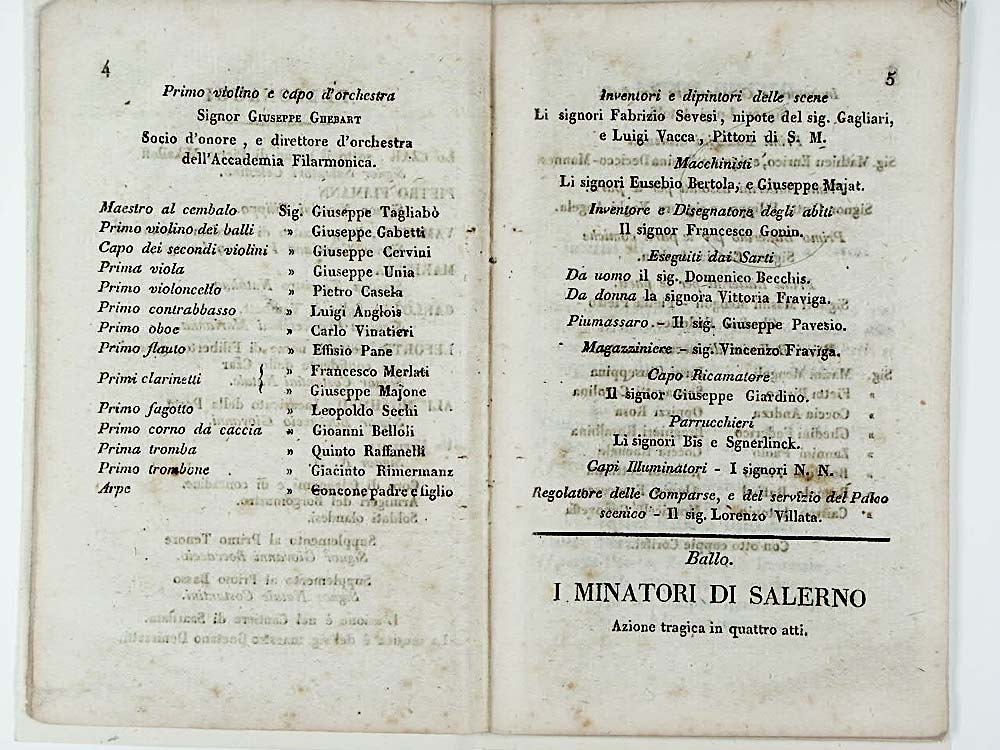 4
Primo violino e capo d'orchestra
Signor GIUSEPPE GHEBART
Socio d'onore , e direttore d'orchestra
dell'Accademia Filarmonica.
Maestro al cembalo Sig. Giuseppe Tagliabò
Primo violino dei balli » Giuseppe Gabetti
Capo dei secondi violini » Giuseppe Cervini
Prima viola » Giuseppe Unia
Primo violoncello » Pietro Casela
Primo contrabbasso » Luigi Anglois
Primo oboe » Carlo Vinatieri
Primo flauto » Effisio Pane
Primi clarinetti { » Francesco Merlati
» Giuseppe Majone
Primo fagotto » Leopoldo Sechi
Primo corno da caccia » Gioanni Belloli
Prima tromba » Quinto Raffanelli
Primo trombone » Giacinto Rimermanz
Arpe » Concone padre e figlio
5
Inventori e dipintori delle scene
Li signori Fabrizio Sevesi, nipote del sig. Gagliari,
e Luigi Vacca, Pittori di S. M.
Macchinisti
Li signori Eusebio Bertola, e Giuseppe Majat.
Inventore e Disegnatore degli abiti
Il signor Francesco Gonin.
Eseguiti dai Sarti
Da uomo il sig. Domenico Becchis.
Da donna la signora Vittoria Fraviga.
Piumassaro. - Il sig. Giuseppe Pavesio.
Magazziniere - sig. Vincenzo Fraviga.
Capo Ricamatore
Il signor Giuseppe Giardino.
Parrucchieri
Li signori Bis e Sgnerlinck.
Capi Illuminatori - I signori N. N.
Regolatore delle Comparse, e del servizio del Palco
scenico - Il sig. Lorenzo Villata.
Ballo.
I MINATORI DI SALERNO
Azione tragica in quattro atti.